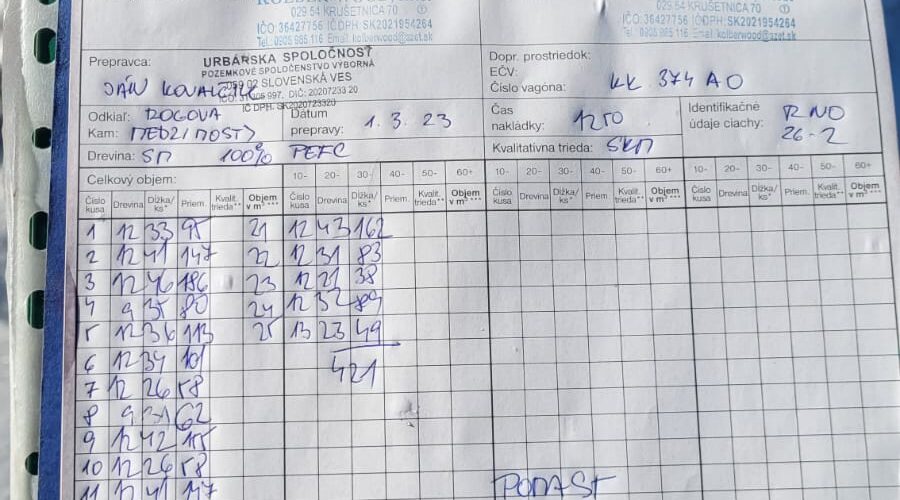 029 54 KRUŠETNICA 70
IČO: 36427756 IČ DPH: SK2021954264
Tel.: 0905 985 116 Email: kolberwood@azet.sk
029 54 KRUŠETNICA 70
IČO: 36427756 IČ DPH: SK2021954264
Tel.: 0905 985 116 Email: kolberwood@azet.sk
Prepravca:
URBÁRSKA SPOLOČNOSŤ
POZEMKOVÉ SPOLOČENSTVO VÝBORNÁ
02 SLOVENSKÁ VES
997, DIČ: 20207233 20
IČ DPH: SK2020723320
JÁN KOVALČÍK
Dopr. prostriedok:
EČV:
Číslo vagona: KK 374 AO
Odkiaľ: ROGOVA
Kam: MEDZI MOSTY
Dátum prepravy: 1.3.23
Čas nakládky: 1250
Identifikačné údaje ciachy: RNO 26-2
Drevina: SM 100% PEFC
Kvalitatívna trieda: SKM
Celkový objem: 10- 20- 30- 40- 50- 60+ 10- 20- 30- 40- 50- 60+ 10- 20- 30- 40- 50- 60+
Číslo kusa Drevina Dĺžka/ ks* Priem. Kvalit. trieda** Objem v m³ *** Číslo kusa Drevina Dĺžka/ ks* Priem. Kvalit. trieda** Objem v m³ *** Číslo kusa Drevina Dĺžka/ ks* Priem. Kvalit. trieda** Objem v m³ *** Číslo kusa Drevina Dĺžka/ ks* Priem. Kvalit. trieda** Objem v m³ ***
1 12 33 95 21 12 43 162
2 12 41 147 22 12 31 83
3 12 46 186 23 12 21 38
4 9 35 80 24 12 32 89
5 12 36 113 25 13 23 49
6 12 34 101 421
7 12 26 58
8 9 31 62
9 12 42 155
10 12 26 58
11 12 41 147